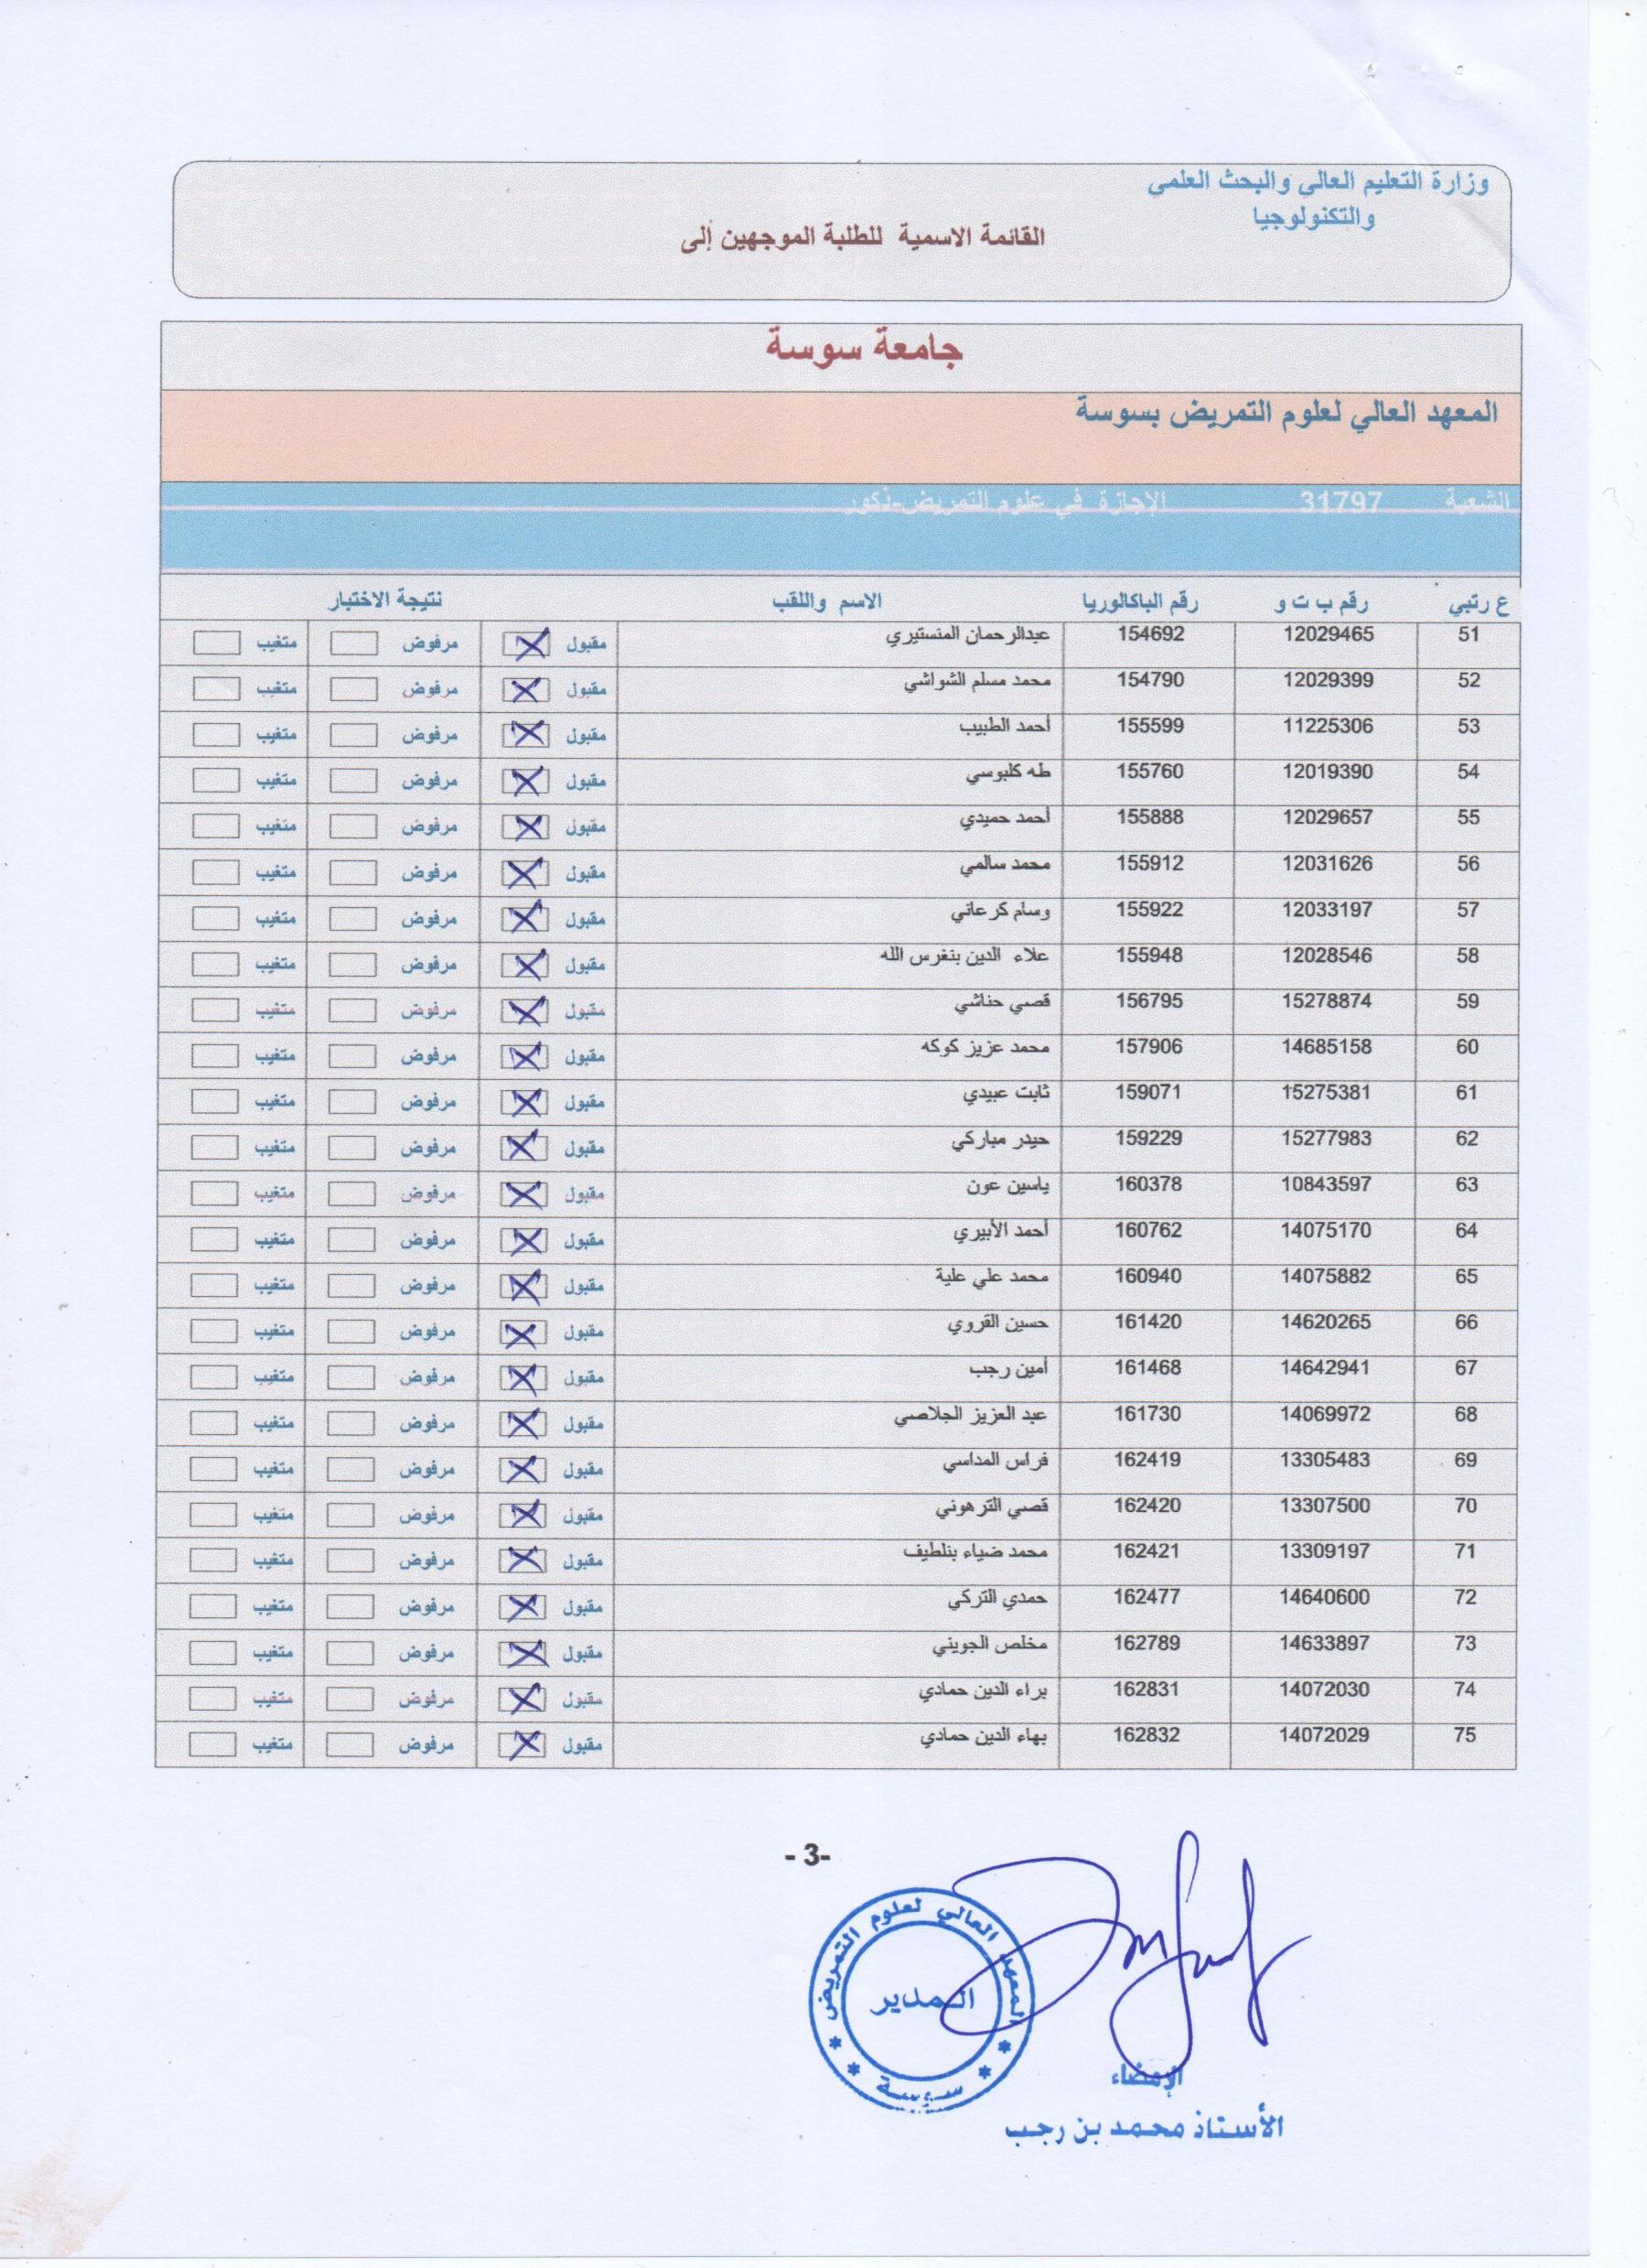 وزارة التعليم العالي والبحث العلمي
والتكنولوجيا
القائمة الاسمية للطلبة الموجهين إلى
جامعة سوسة
المعهد العالي لعلوم التمريض بسوسة
الشعبة 31797 الإجازة في علوم التمريض-ذكور
ع رتبي رقم ب ت و رقم الباكالوريا الاسم واللقب نتيجة الاختبار
51 12029465 154692 عبدالرحمان المنستيري مقبول مرفوض متغيب
52 12029399 154790 محمد مسلم الشواشي مقبول مرفوض متغيب
53 11225306 155599 أحمد الطبيب مقبول مرفوض متغيب
54 12019390 155760 طه كلبوسي مقبول مرفوض متغيب
55 12029657 155888 أحمد حميدي مقبول مرفوض متغيب
56 12031626 155912 محمد سالمي مقبول مرفوض متغيب
57 12033197 155922 وسام كرعاني مقبول مرفوض متغيب
58 12028546 155948 علاء الدين بنغرس الله مقبول مرفوض متغيب
59 15278874 156795 قصي حناشي مقبول مرفوض متغيب
60 14685158 157906 محمد عزيز كوكه مقبول مرفوض متغيب
61 15275381 159071 ثابت عبيدي مقبول مرفوض متغيب
62 15277983 159229 حيدر مباركي مقبول مرفوض متغيب
63 10843597 160378 ياسين عون مقبول مرفوض متغيب
64 14075170 160762 أحمد الأبيري مقبول مرفوض متغيب
65 14075882 160940 محمد علي علية مقبول مرفوض متغيب
66 14620265 161420 حسين القروي مقبول مرفوض متغيب
67 14642941 161468 أمين رجب مقبول مرفوض متغيب
68 14069972 161730 عبد العزيز الجلاصي مقبول مرفوض متغيب
69 13305483 162419 فراس المداسي مقبول مرفوض متغيب
70 13307500 162420 قصي الترهوني مقبول مرفوض متغيب
71 13309197 162421 محمد ضياء بنلطيف مقبول مرفوض متغيب
72 14640600 162477 حمدي التركي مقبول مرفوض متغيب
73 14633897 162789 مخلص الجويني مقبول مرفوض متغيب
74 14072030 162831 براء الدين حمادي مقبول مرفوض متغيب
75 14072029 162832 بهاء الدين حمادي مقبول مرفوض متغيب
- 3-
المعهد العالي لعلوم التمريض
المدير
سوسة
الإمضاء
الأستاذ محمد بن رجب